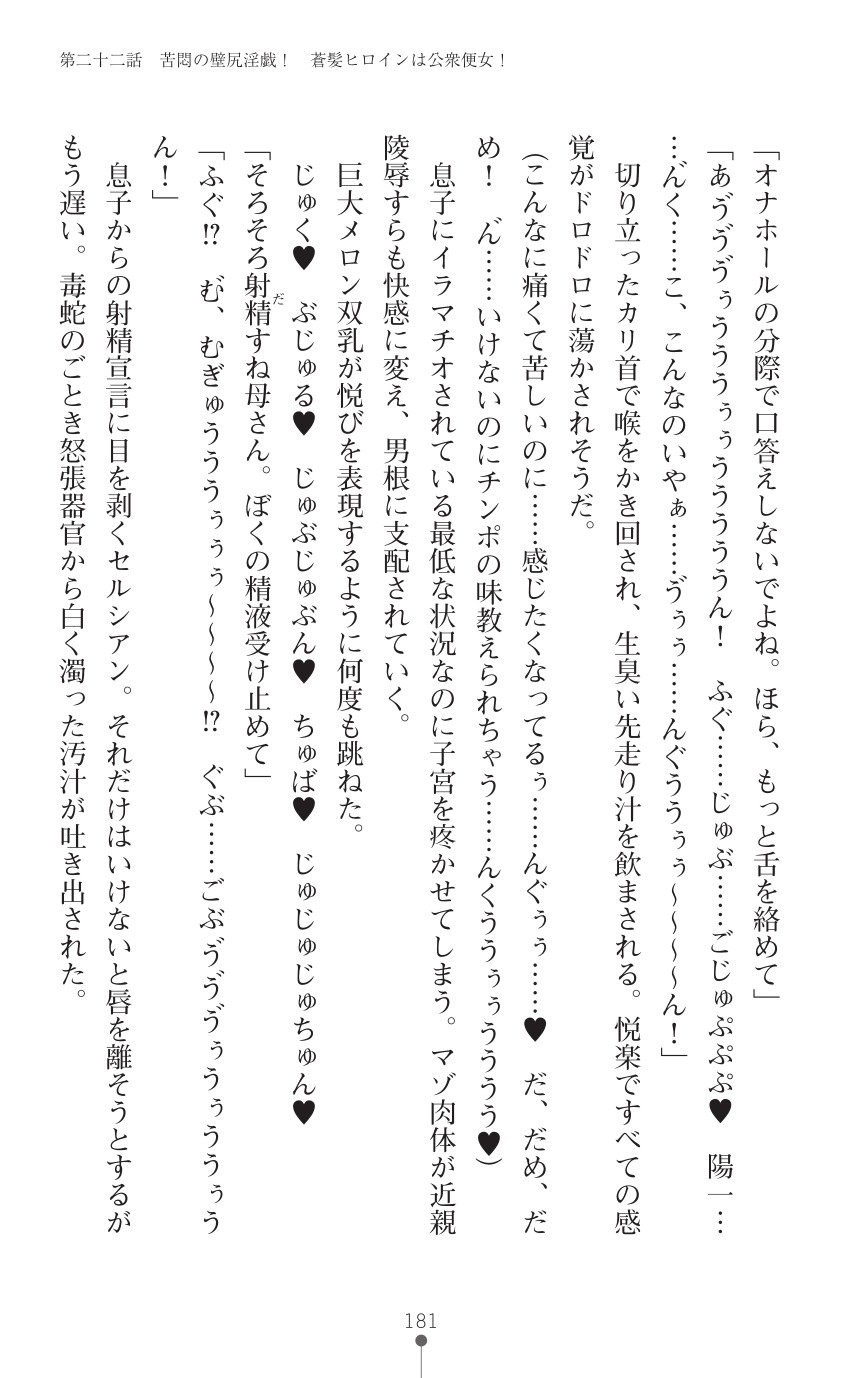 第二十二話　苦悶の壁尻淫戯！　蒼髪ヒロインは公衆便女！
「オナホールの分際で口答えしないでよね。ほら、もっと舌を絡めて」
「あ゛ゔゔぅうううぅぅうううううん！　ふぐ……じゅぶ……ごじゅぷぷぷ♥　陽一…
…ん゛く……こ、こんなのいやぁ……ゔぅぅ……んぐううぅぅ～～～～ん！」
切り立ったカリ首で喉をかき回され、生臭い先走り汁を飲まされる。悦楽ですべての感
覚がドロドロに蕩かされそうだ。
（こんなに痛くて苦しいのに……感じたくなってるぅ……んぐぅぅ……♥　だ、だめ、だ
め！　ん゛……いけないのにチンポの味教えられちゃう……んくううぅぅうううう♥）
息子にイラマチオされている最低な状況なのに子宮を疼かせてしまう。マゾ肉体が近親
陵辱すらも快感に変え、男根に支配されていく。
巨大メロン双乳が悦びを表現するように何度も跳ねた。
じゅく♥　ぶじゅる♥　じゅぶじゅぶん♥　ちゅば♥　じゅじゅじゅちゅん♥
「そろそろ射精すね母さん。ぼくの精液受け止めて」
だ
「ふぐ!?　む゛、むぎゅうううぅぅぅ～～～～!?　ぐぶ……ごぶゔゔゔぅうぅううぅう
ん！」
息子からの射精宣言に目を剥くセルシアン。それだけはいけないと唇を離そうとするが
もう遅い。毒蛇のごとき怒張器官から白く濁った汚汁が吐き出された。
181